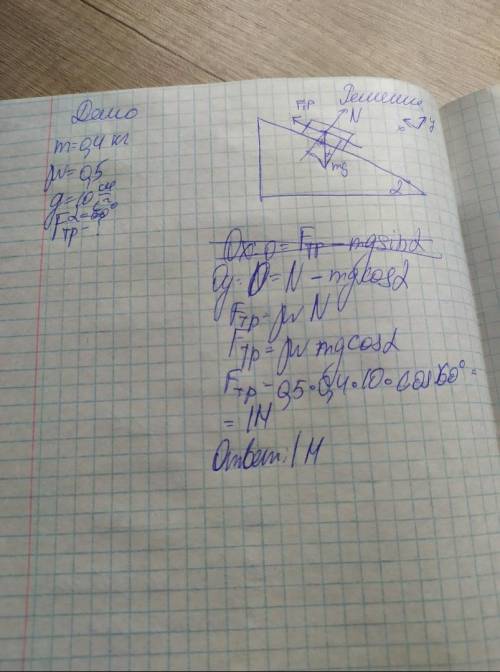 Дано
m=0,4 кг
μ=0,5
g=10 м/с²
α=60°
Fтр-?
Решение
Fтр
N
mg
α
y
Ox: 0=Fтр-mgsinα
Oy: 0=N-mgcosα
Fтр=μN
Fтр=μmgcosα
Fтр=0,5·0,4·10·cos60°=
=1Н
Ответ: 1 Н